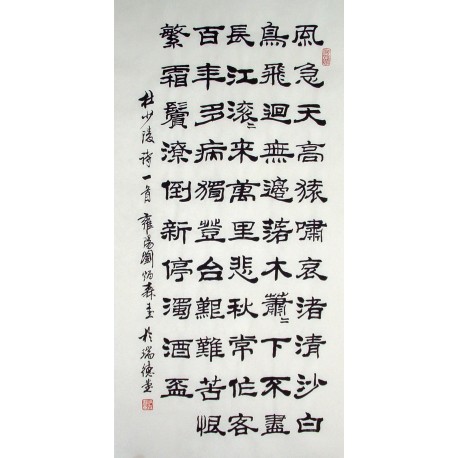 風急天高猿嘯哀渚清沙白
鳥飛迴無邊落木蕭〻下不盡
長江滾〻來萬里悲秋常作客
百年多病獨登台艱難苦恨
繁霜鬢潦倒新停濁酒盃
杜少陵詩一首 雍陽劉炳森書於瑞德堂